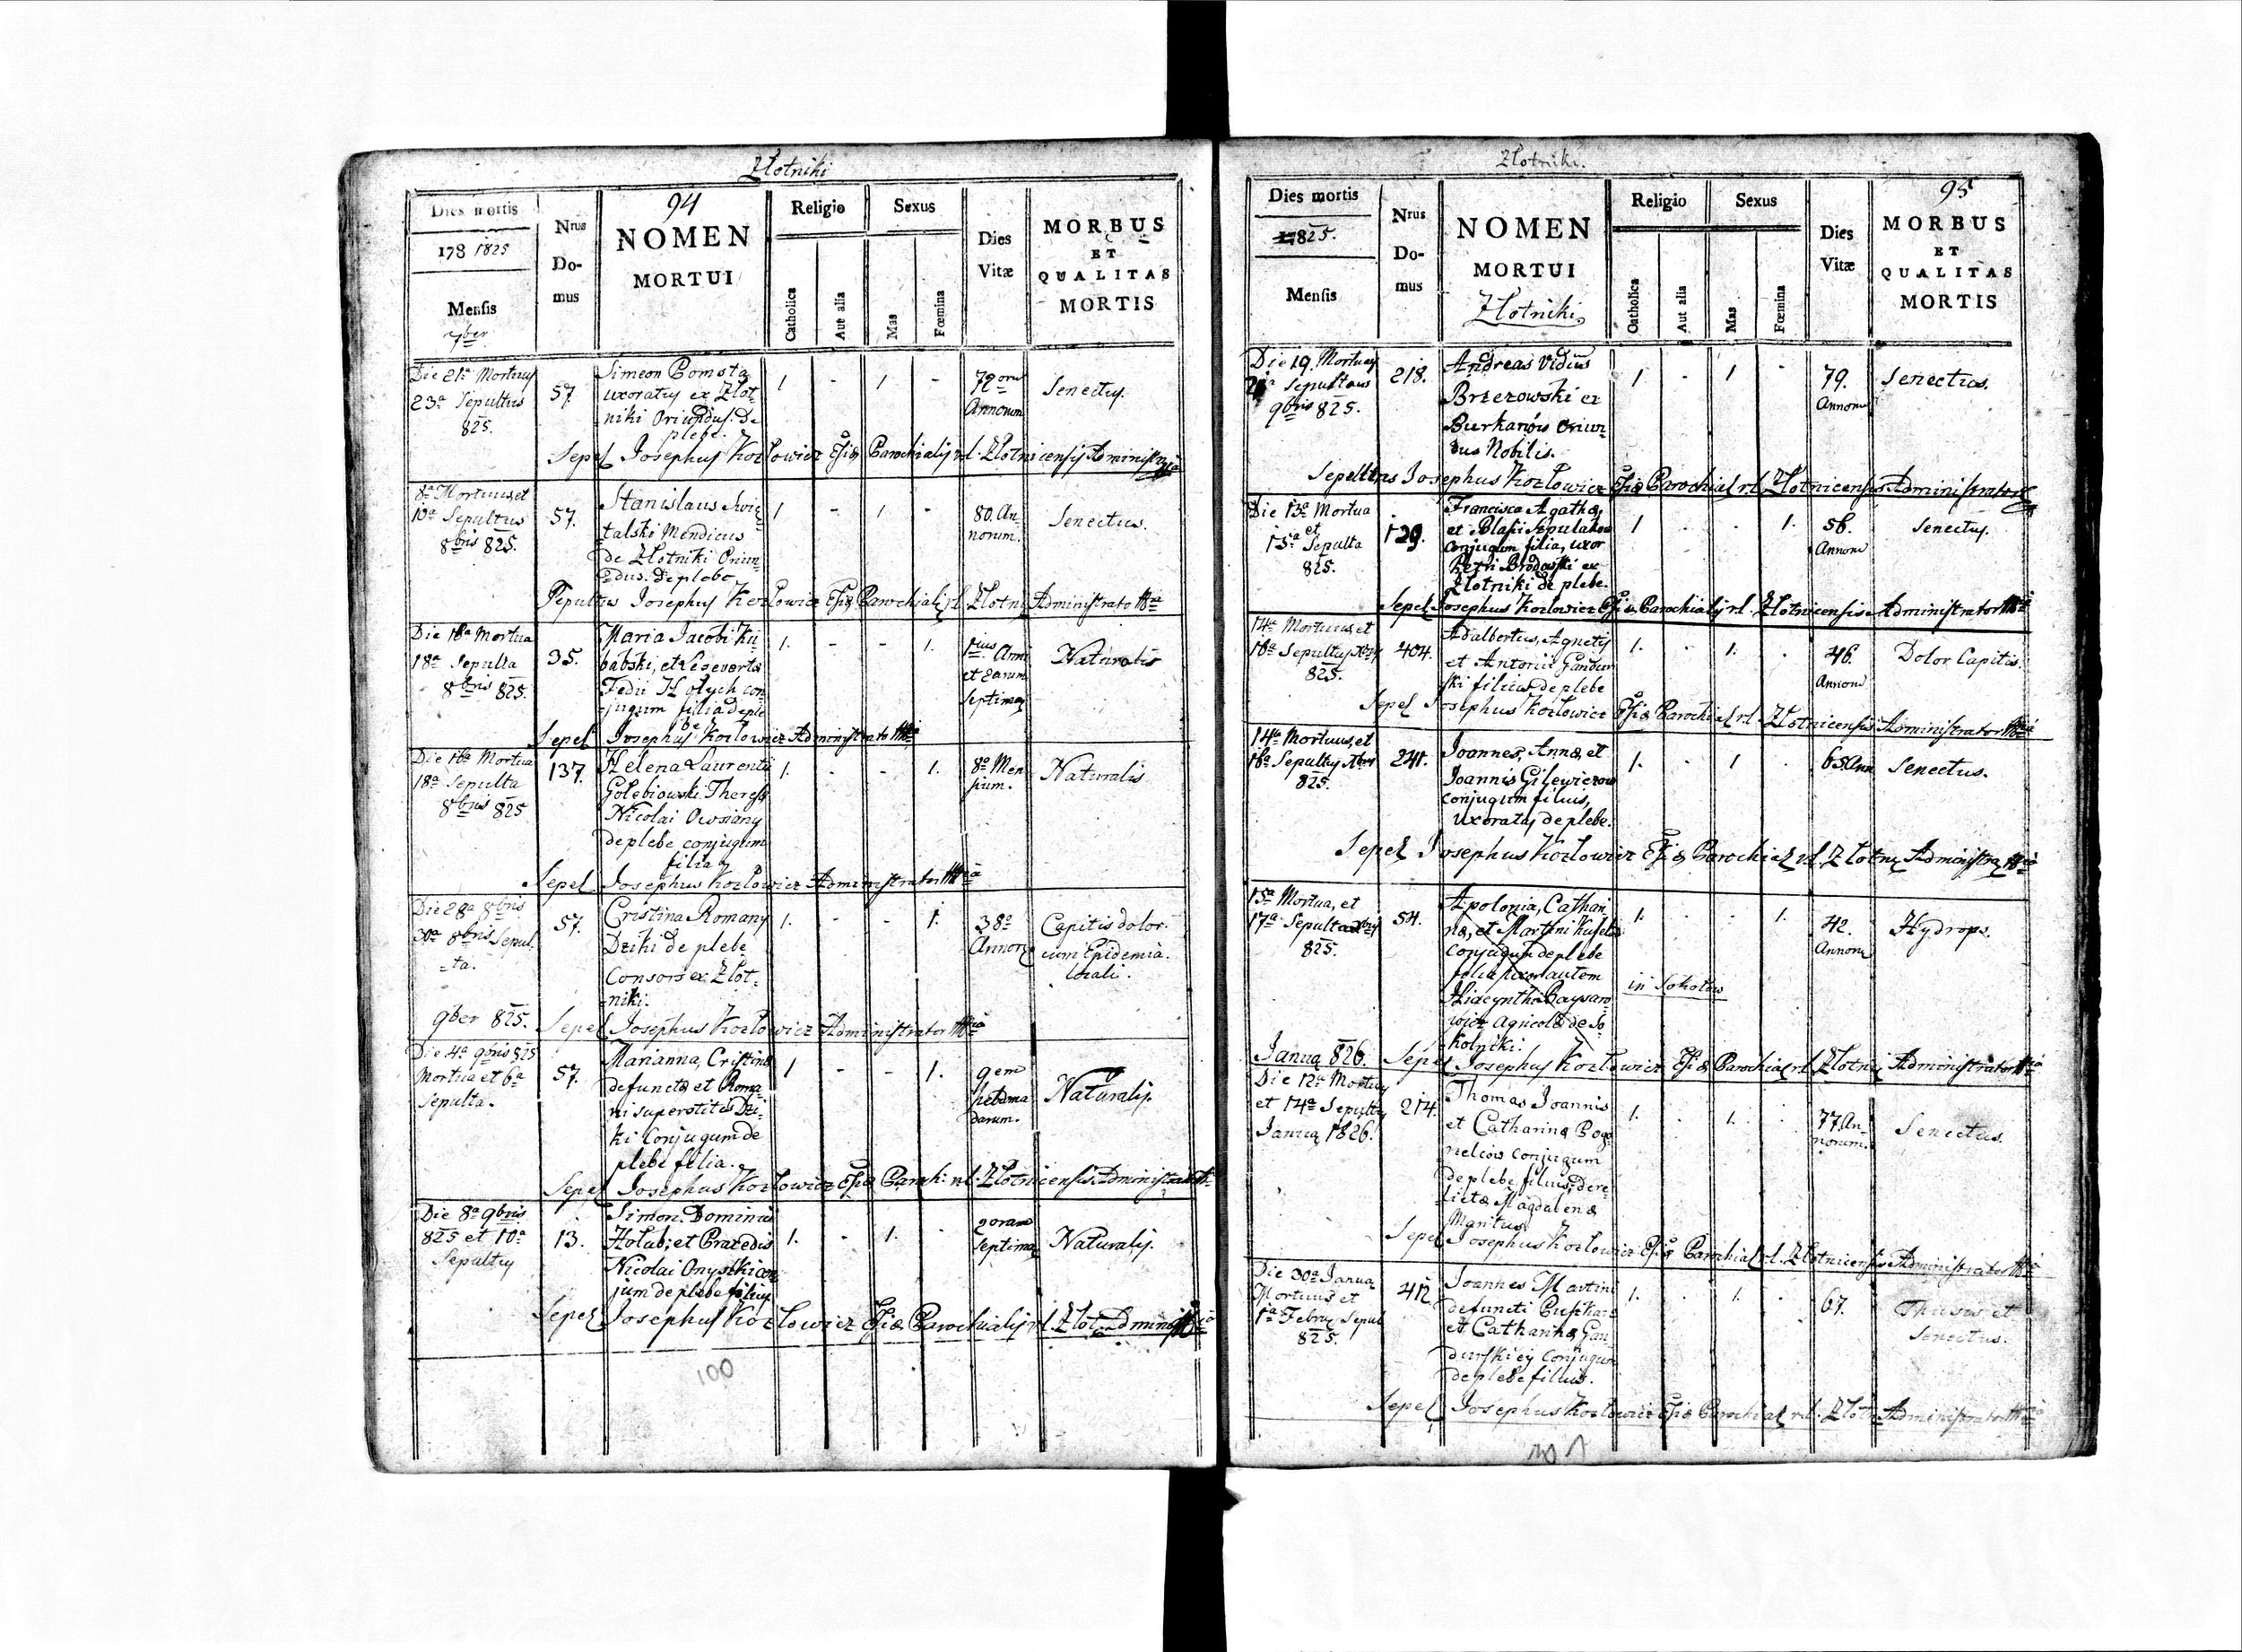 Złotniki
94
Dies mortis
178 1825
Mensis
7ber
Nrus
Do-
mus
NOMEN
MORTUI
Religio
Catholica
Aut alia
Sexus
Mas
Fœmina
Dies
Vitæ
MORBUS
ET
QUALITAS
MORTIS
Die 21a Mortuus
23a Sepultus
825.
57.
Simeon Pomsta
uxoratus ex Złot-
niki Oriundus. De
plebe.
1
-
1
-
72orum
Annorum
Senectus.
Sepel Josephus Kozłowicz Eccliæ Parochialis r.l. Złotnicensis Administrator
8a Mortuus et
10a Sepultus
8bris 825.
57.
Stanislaus Swię-
talski Mendicus
de Złotniki Oriun-
dus. De plebe
1
-
1
-
80. An-
norum.
Senectus.
Josephus Kozłowicz Eccliæ Parochialis r.l. Złotni Administrator
Die 16a Mortua
18a Sepulta
8bris 825.
35.
Maria Jacobi Ku-
babski, et
Fedii Hołych con-
jugum filia de ple
be
1.
-
-
1.
1ius Anni
et 2arum
Septiman
Naturalis
Sepel Josephus Kozłowicz Administrator
Die 16a Mortua
18a Sepulta
8bris 825
137.
Helena Laurentii
Gołębiowski Theresæ
Nicolai Owsiany
de plebe conjugum
filia
1.
-
-
1.
8o Men
sium.
Naturalis
Sepel Josephus Kozłowicz Administrator
Die 28a 8bris
30a 8bris Sepul-
-ta.
57.
Cristina Romany
Dziki de plebe
Consors ex Złot-
-niki.
1.
-
-
1.
38o
Annor
Capitis dolor
cum Epidemia
locali.
9ber 825.
Sepel Josephus Kozłowicz Administrator
Die 4a 9bris 825
Mortua et 6a
Sepulta.
57.
Marianna, Cristinæ
defunctæ et Roma-
ni superstitis Dzi-
ki Conjugum de
plebe filia.
1
-
-
1.
9em
hebdoma
darum.
Naturalis.
Sepel Josephus Kozłowicz Eccliæ Paroch: r.l. Złotnicensis Administrator
Die 8a 9bris
825 et 10a
Sepultus
13.
Simon. Dominici
Hołub, et Praxedis
Nicolai Onyszki con
jum de plebe filius
1.
-
1.
-
Septiman
Naturalis.
Sepel Josephus Kozłowicz Eccliæ Parochialis r.l. Złot. Administr
100
Złotniki.
95
Dies mortis
178 25.
Mensis
Nrus
Do-
mus
NOMEN
MORTUI
Złotniki
Religio
Catholica
Aut alia
Sexus
Mas
Fœmina
Dies
Vitæ
MORBUS
ET
QUALITAS
MORTIS
Die 19. Mortuus
21a Sepultus
9bris 825.
218.
Andreas Viduus
Brzezowski ex
Burkanów oriun-
dus Nobilis.
1
-
1
-
79.
Annorum
Senectus.
Sepeliens Josephus Kozłowicz Eccliæ Parochial r.l. Złotnicensis Administrator
Die 13a Mortua
et
15a Sepulta
825.
129.
Francisca Agathæ,
et Blasii
conjugum filia, uxor
Petri Brodowski ex
Złotniki de plebe.
1
.
.
1.
56.
Annorum
Senectus.
Sepel Josephus Kozłowicz Eccliæ Parochialis r.l. Złotnicensis Administrator
14a Mortuus, et
16a Sepultus Xbris
825.
404.
Adalbertus, Agnetis
et Antonii Gandur-
ski filius de plebe
1.
.
1.
.
46.
Annorum
Dolor Capitis.
Sepel Josephus Kozłowicz Eccliæ Parochial r.l. Złotnicensis Administrator
14a Mortuus, et
16a Sepultus Xbris
825.
241.
Joannes, Annæ, et
Joannis Gilewiczow
conjugum filius,
uxoratus de plebe.
1.
.
1
.
65. Ann
Senectus.
Sepel Josephus Kozłowicz Eccliæ Parochial r.l. Złotni Administra
15a Mortua, et
17a Sepulta Xbris
825.
54.
Apolonia, Cathari-
næ, et Martini
conjugum de plebe
filia uxor autem
Hiacynthi
wicz Agricolæ de So-
kolniki.
1.
.
.
1.
in Sokołów
42.
Annorum
Hydrops.
Janua 826.
Sepel Josephus Kozłowicz Eccliæ Parochial r.l. Złotni Administrator
Die 12a Mortuus
et 14a Sepultus
Janua 1826.
214.
Thomas Joannis
et Catharinæ Pogo
nelców conjugum
de plebe filius, dere
lictæ Magdalenæ
Maritus.
1.
.
1.
.
77. An-
norum.
Senectus.
Sepel Josephus Kozłowicz Eccliæ Parochial r.l. Złotnicensis Administrator
Die 30a Janua
Mortuus et
1a Februa Sepul
825.
412.
Joannes Martini
defuncti
et Catharinæ Gan-
durskiey Conjugum
de plebe filius.
1.
.
1.
.
67.
Thusis et
Senectus.
Sepel Josephus Kozłowicz Eccliæ Parochial r.l. Złotni Administrator